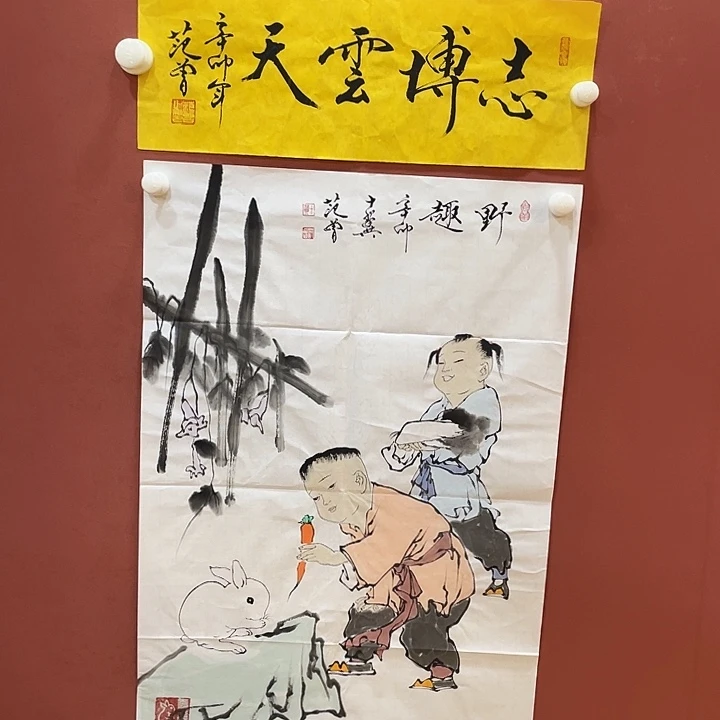 志博雲天
辛卯年
范曾
野趣
辛卯
十翼
范曾